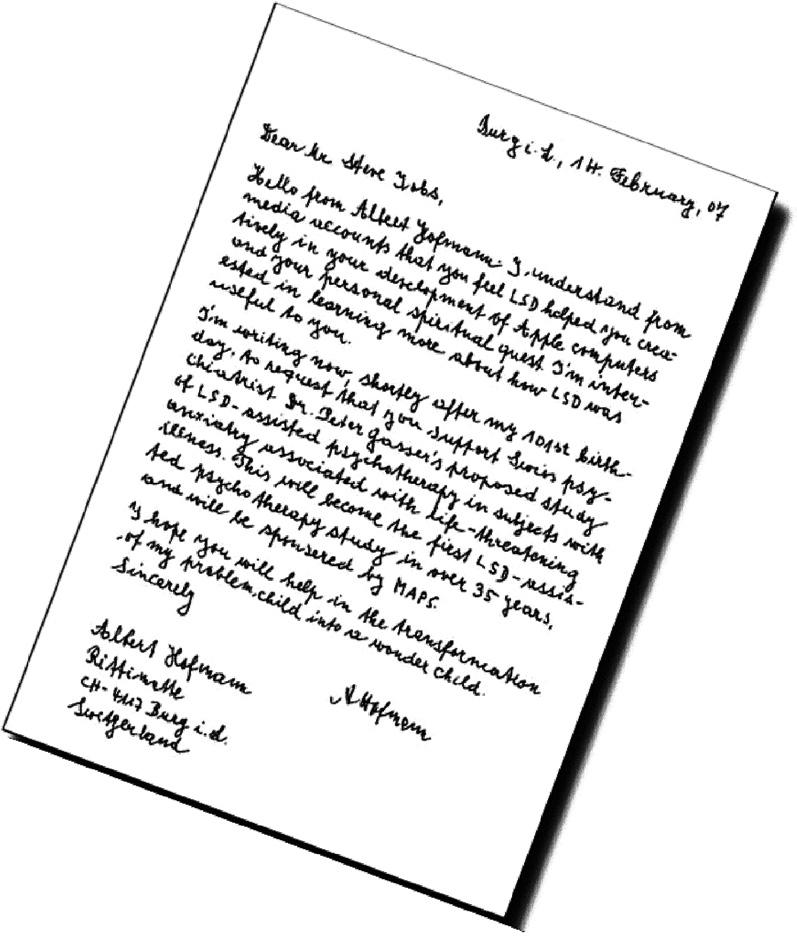 Burg i. L., 14. February, 07
Dear Mr. Steve Jobs,
Hello from Albert Hofmann. I understand from
media accounts that you feel LSD helped you crea-
tively in your development of Apple computers
and your personal spiritual quest. I'm inter-
ested in learning more about how LSD was
useful to you.
I'm writing now, shortly after my 101st birth-
day, to request that you support Swiss psy-
chiatrist Dr. Peter Gasser's proposed study
of LSD-assisted psychotherapy in subjects with
anxiety associated with life-threatening
illness. This will become the first LSD-assis-
ted psychotherapy study in over 35 years,
and will be sponsered by MAPS.
I hope you will help in the transformation
of my problem child into a wonder child.
Sincerely
Albert Hofmann
A. Hofmann
Rittimatte
CH-4117 Burg i. L.
Switzerland